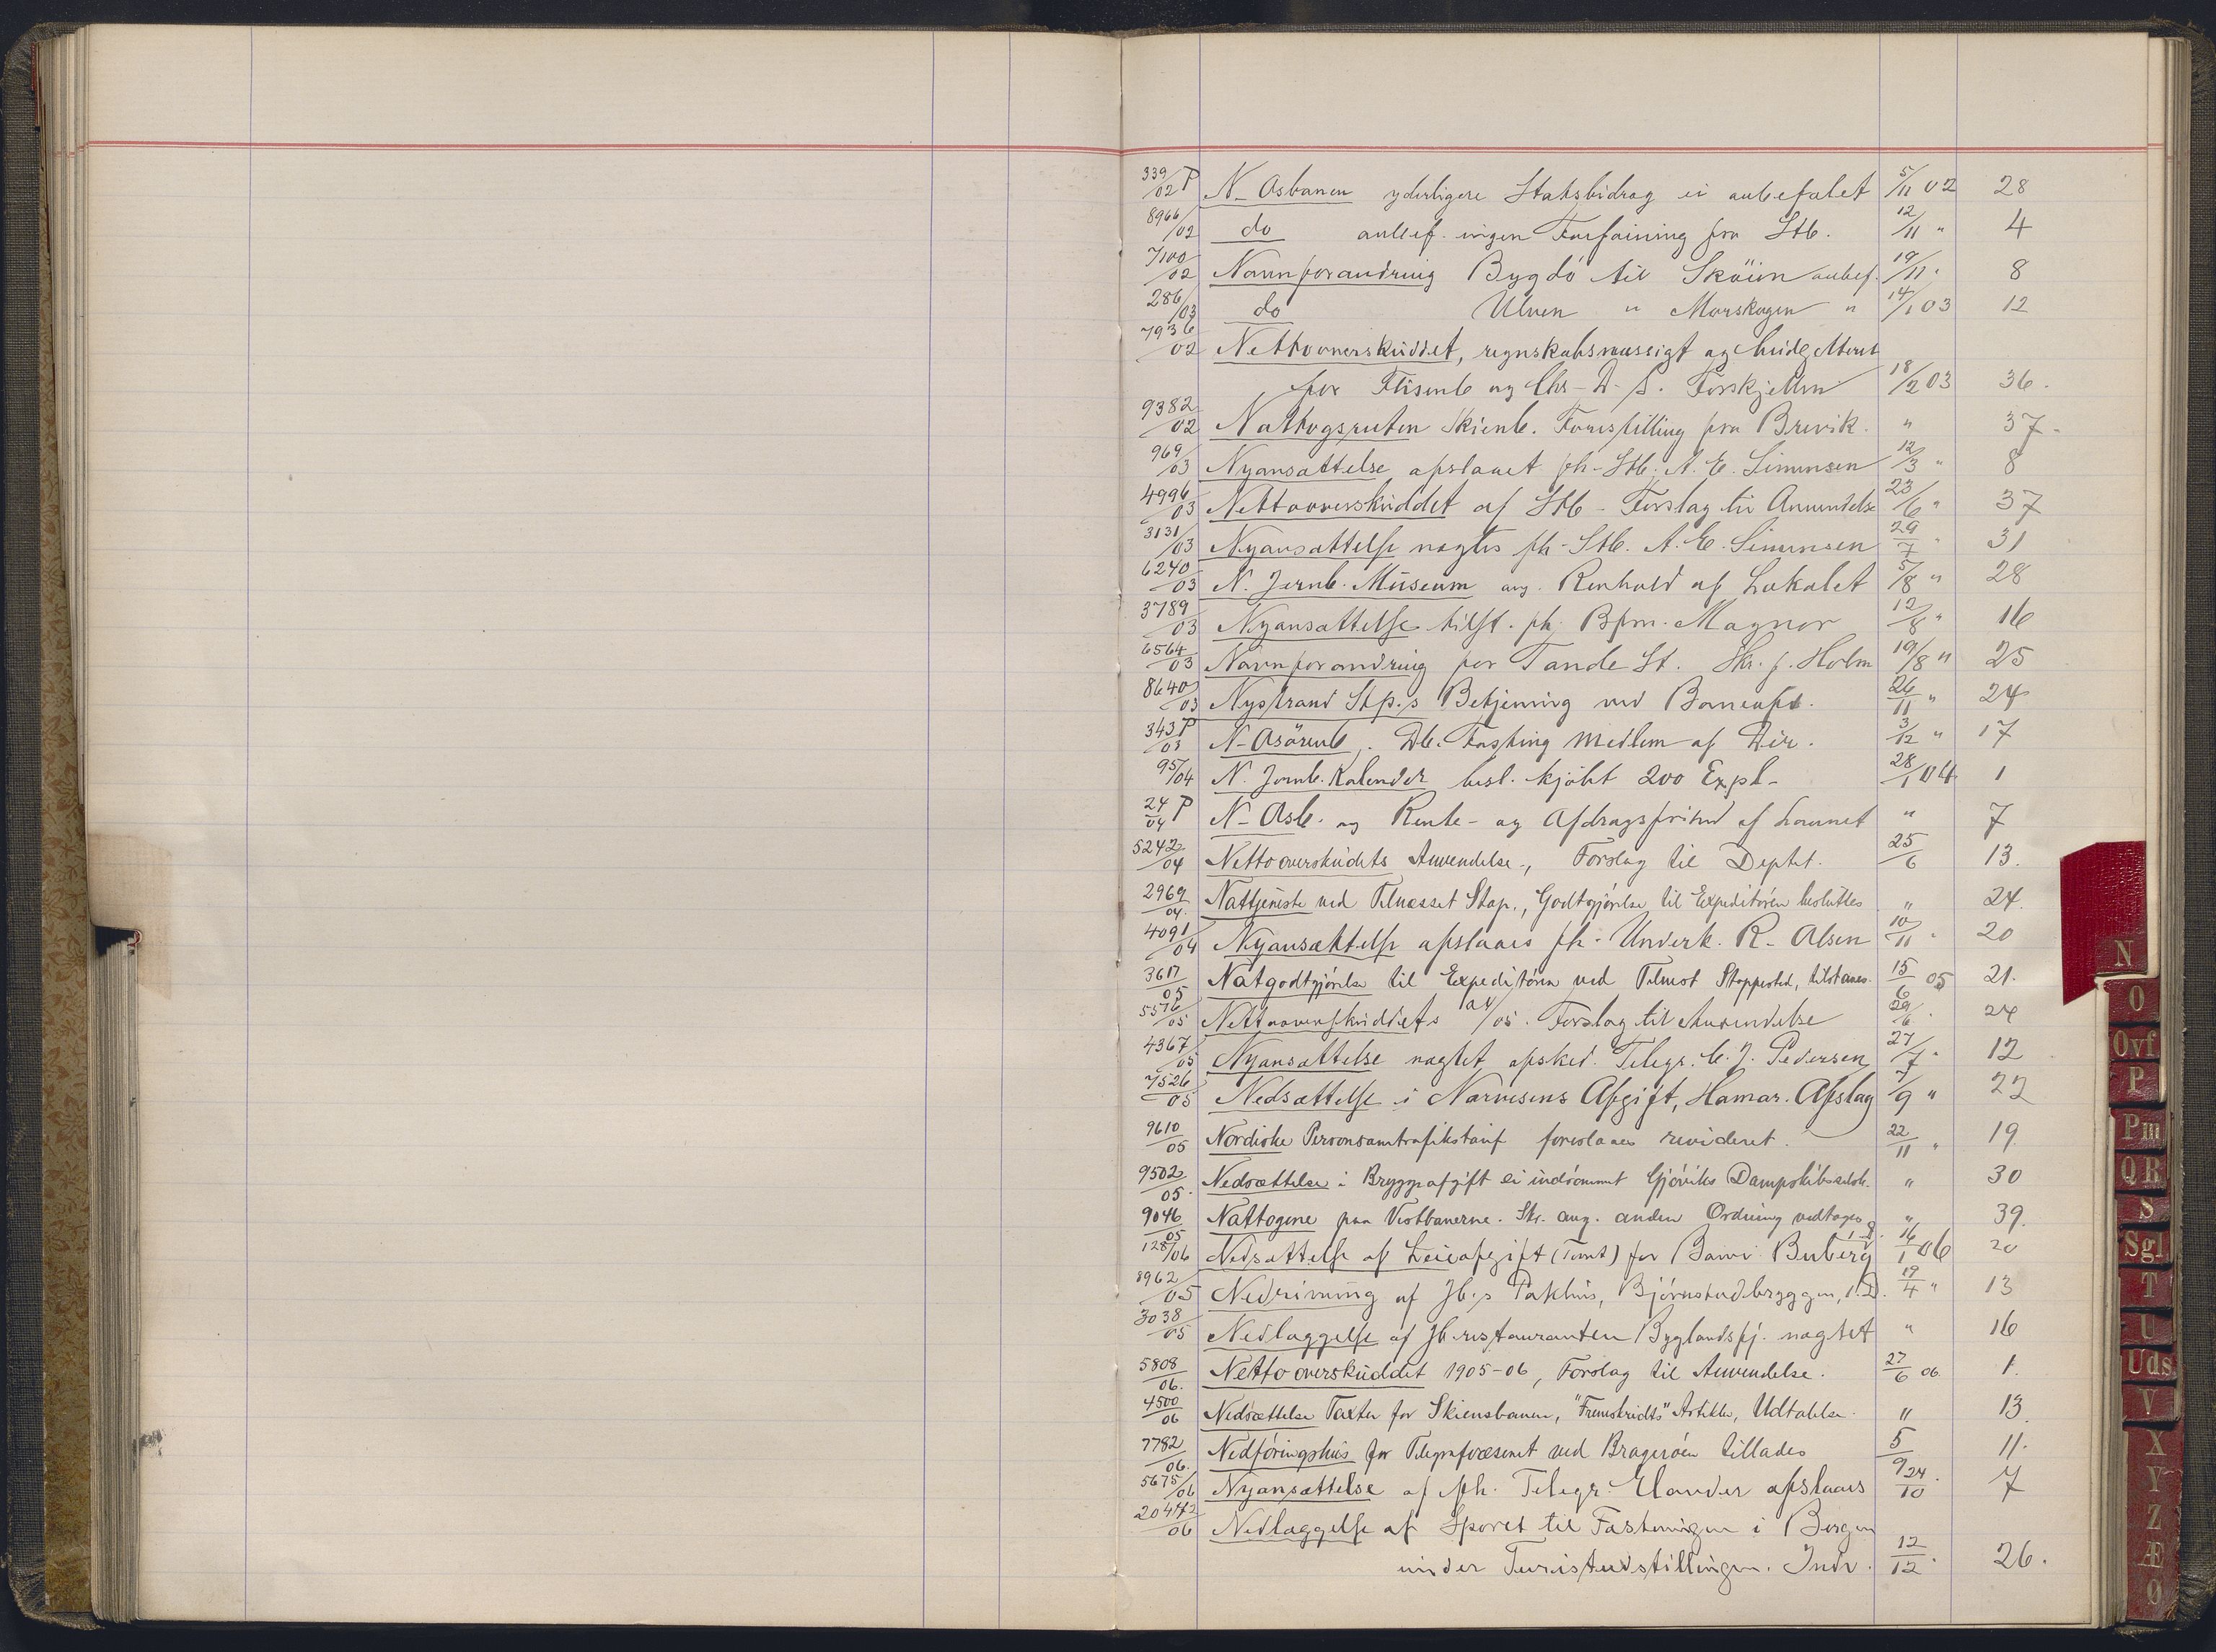 339/02 P N-Asbanen yderligere Statsbidrag ei anbefalet 5/11 02 28
8966/02 do anbef. ingen Forføining fra Stb. 12/11 " 4
7100/02 Navnforandring Bygdö til Sköien anbef. 19/11 " 8
286/03 do Ulven " Morskogen " 14/1 03 12
7936/02 Nettooverskuddet, regnskabsmæssigt og budgetteret
for Flisenb og Chr-D. S. Forskjellen 18/2 03 36.
9382/02 Nattogsruten Skienb. Forestilling fra Brevik. " 37.
969/03 Nyansættelse afslaaet fh. Stb. A. E. Simensen 12/3 " 8
4996/03 Nettooverskuddet af Stb - Forslag til Anvendelse 23/6 " 37
3131/03 Nyansættelse nægtes fh. Stb. A. E. Simensen 29/7 " 31
6240/03 N. Jernb. Museum ang. Renhold af Lokalet 5/8 " 28
3789/03 Nyansættelse tilst. fh. Bfm. Magnor 12/8 " 16
6564/03 Navnforandring for Tande St. Skr. f. Holm 19/8 " 25
8640/03 Nystrand Stp.s Betjening ved Baneafd. 26/11 " 24
343/03 P N-Asörenb. Db. Fasting Medlem af Dir. 3/12 " 17
95/04 N. Jernb. Kalender besl. kjöbt 200 Expl. 28/1 04 1
24/04 P N-Asb. ang Rente- og Afdragsfrihed af Laanet " 7
5242/04 Nettooverskudets Anvendelse., Forslag til Deptet. 25/6 13.
2969/04. Nattjeneste ved Tilnesset Stop., Godtgjörelse til Expeditören besluttes " 24.
4091/04 Nyansættelse afslaaes fh. Underk. R. Olsen 10/11 " 20
3617/05 Natgodtgjörelse til Expeditören ved Stoppested, tilstaaes. 15/6 05 21.
5576/05 Nettooverskuddets 04/05. Forslag til Anvendelse 29/6 " 24
4367/05 Nyansættelse nægtet afsked. Telegr. C. J. Pedersen 27/7 " 12
7526/05 Nedsættelse i Narvesens Afgift, Hamar. Afslag 7/9 " 22
9610/05 Nordiske Personsamtrafikstarif foreslaaes revideret. 22/11 " 19.
9502/05. Nedsættelse i Bryggeafgift ei indrömmet Gjöviks Dampskibsselsk. " 30
9046/05 Nattogene paa Vestbanerne. Skr. ang. anden Ordning vedtages " 39.
128/06 Nedsættelse af Leieafgift (Tomt) for Buberg 16/1 06 20
8962/05 Nedrivning af Jb.s Pakhus, Björnstadbryggen, 1. D. 19/4 " 13
3038/05 Nedlæggelse af Jb.restauranten Byglandsfj. nægtet " 16
5808/06. Nettooverskuddet 1905-06, Forslag til Anvendelse. 27/6 06 1.
4500/06 Nedsættelse Taxter for Skiensbanen, "Fremskridts" Artikler, Udtalelse. " 13.
7782/06. Nedföringshus for Telegrafvæsenet ved Brageröen tillades 5/9 11.
5675/06 Nyansættelse af fh. Telegr. Elander afslaaes 24/10 . 7
20472/06 Nedlæggelse af Sporet til Fæstningen i Bergen
under Turistudstillingen. Indr. 12/12 . 26.
N
O
Ovf
P
Pm
QR
S
Sgl
T
U
Uds
V
X
Y
Z
Æ
Ø